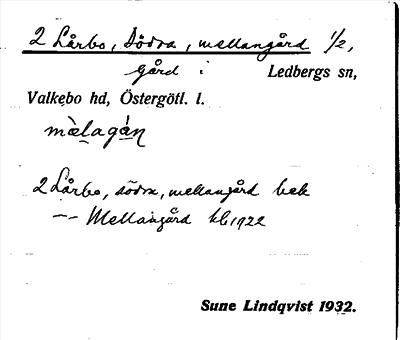 2 Lårbo, Södra, mellangård 1/2,
gård i Ledbergs sn,
Valkebo hd, Östergötl. l.
mèlagán
2 Lårbo, södra, mellangård bek
-- Mellangård kb 1922
Sune Lindqvist 1932.